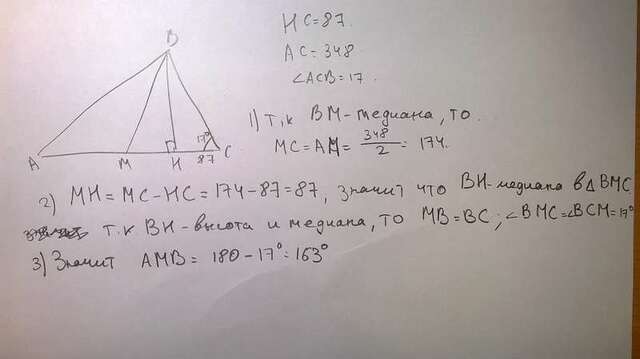 HC=87
AC=348
∠ACB=17
B
17°
A M H 87 C
1) т.к BM-медиана, то
MC=AM=348/2=174.
2) MH=MC-HC=174-87=87, значит что BH-медиана в△BMC
т.к BH-высота и медиана, то MB=BC; ∠BMC=∠BCM=17°
3) Значит AMB=180-17°=163°